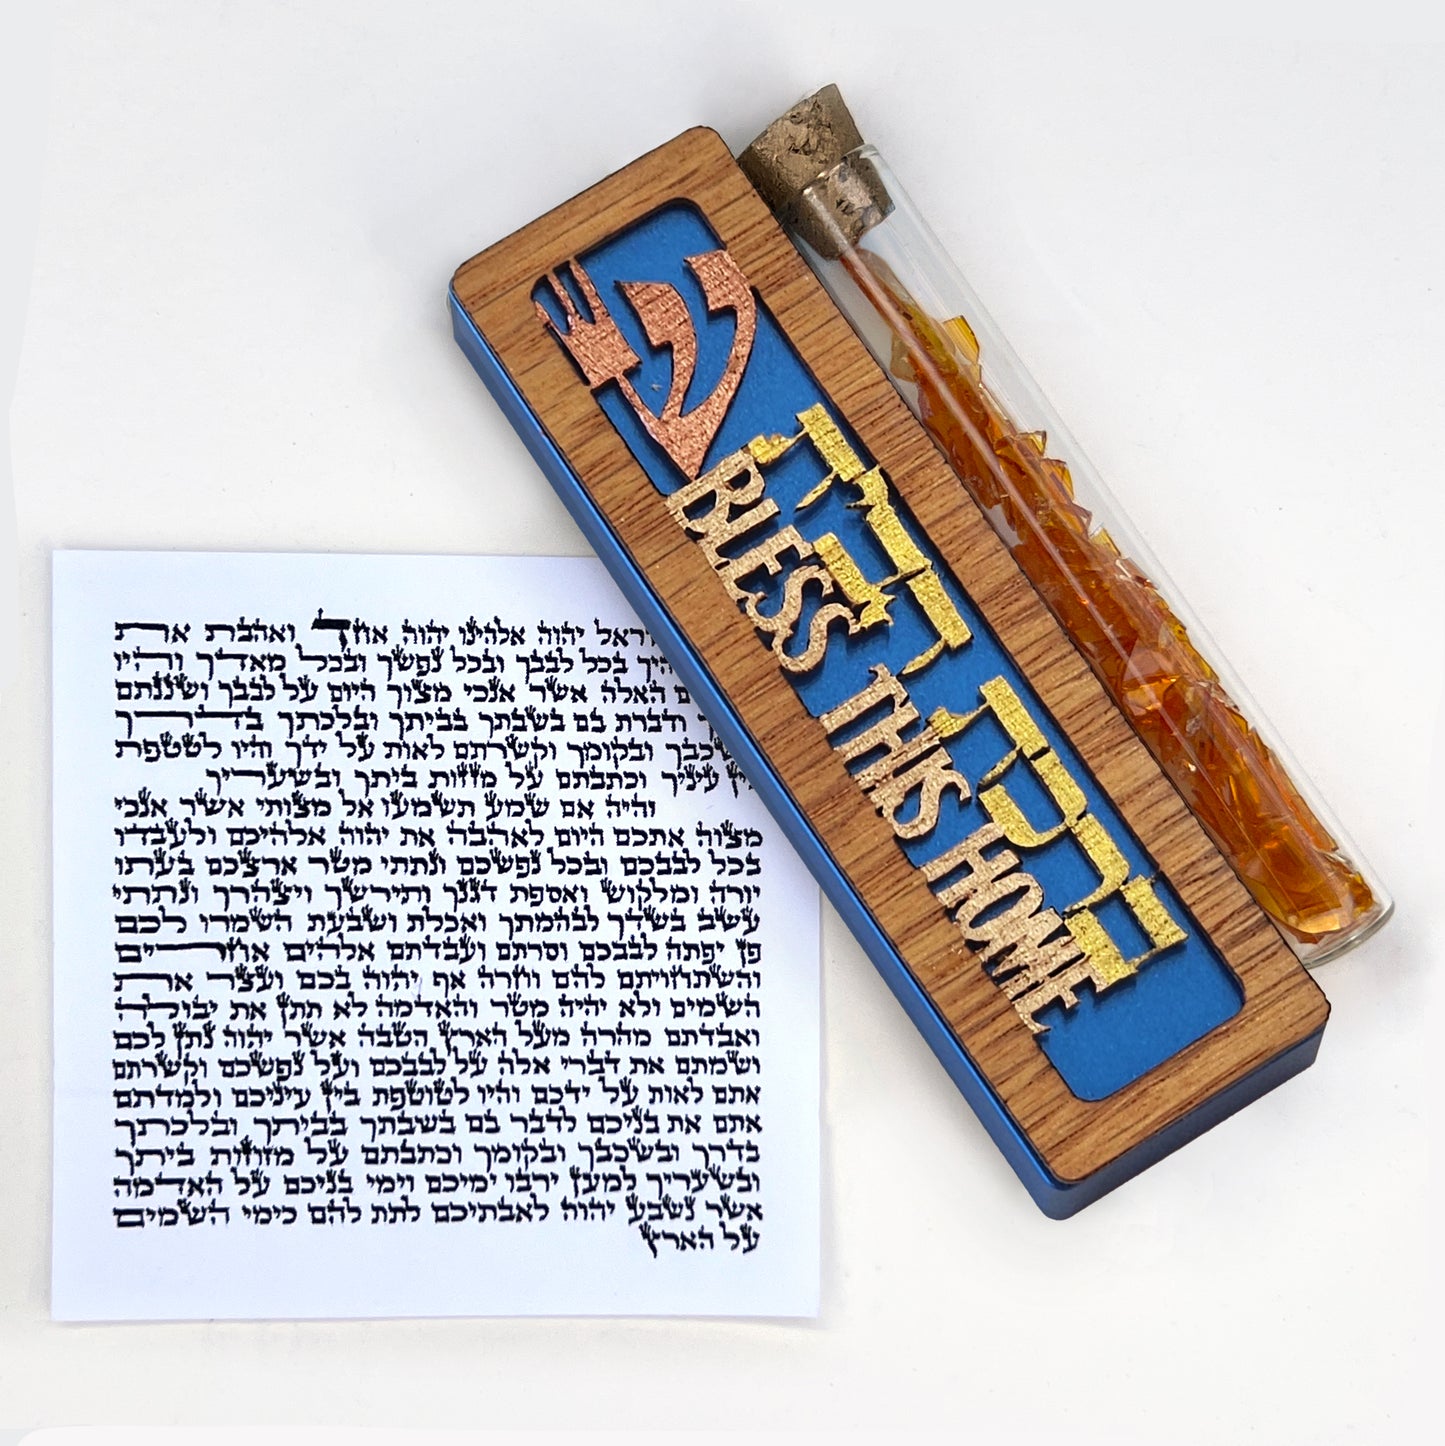 ש
ברכת הבית
BLESS THIS HOME
יהוה אלהינו יהוה אחד ואהבת את
בכל לבבך ובכל נפשך ובכל מאדך והיו
האלה אשר אנכי מצוך היום על לבבך ושננתם
ודברת בם בשבתך בביתך ובלכתך בדרך
ובקומך וקשרתם לאות על ידך והיו לטטפת
עיניך וכתבתם על מזזות ביתך ובשעריך
והיה אם שמע תשמעו אל מצותי אשר אנכי
מצוה אתכם היום לאהבה את יהוה אלהיכם ולעבדו
בכל לבבכם ובכל נפשכם ונתתי מטר ארצכם בעתו
יורה ומלקוש ואספת דגנך ותירשך ויצהרך ונתתי
עשב בשדך לבהמתך ואכלת ושבעת השמרו לכם
פן יפתה לבבכם וסרתם ועבדתם אלהים אחרים
והשתחויתם להם וחרה אף יהוה בכם ועצר את
השמים ולא יהיה מטר והאדמה לא תתן את יבולה
ואבדתם מהרה מעל הארץ הטבה אשר יהוה נתן לכם
ושמתם את דברי אלה על לבבכם ועל נפשכם וקשרתם
אתם לאות על ידכם והיו לטוטפת בין עיניכם ולמדתם
אתם את בניכם לדבר בם בשבתך בביתך ובלכתך
בדרך ובשכבך ובקומך וכתבתם על מזוזות ביתך
ובשעריך למען ירבו ימיכם וימי בניכם על האדמה
אשר נשבע יהוה לאבתיכם לתת להם כימי השמים
על הארץ